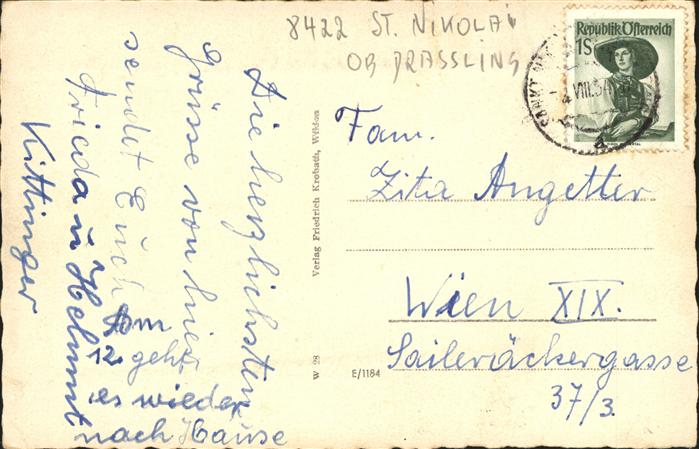 8422 ST. NIKOLAI
OB DRASSLING
Die herzlichsten
Grüsse von hier
sendet Euch
Frieda u Helmut
Kittinger
Am
12. geht
es wieder
nach Hause
Verlag Friedrich Krobath, Wildon
W 28
E/1184
Republik Österreich
1S
SANKT
VIII.54
a
Fam.
Zita Angetter
Wien XIX.
Saileräckergasse
37/3.